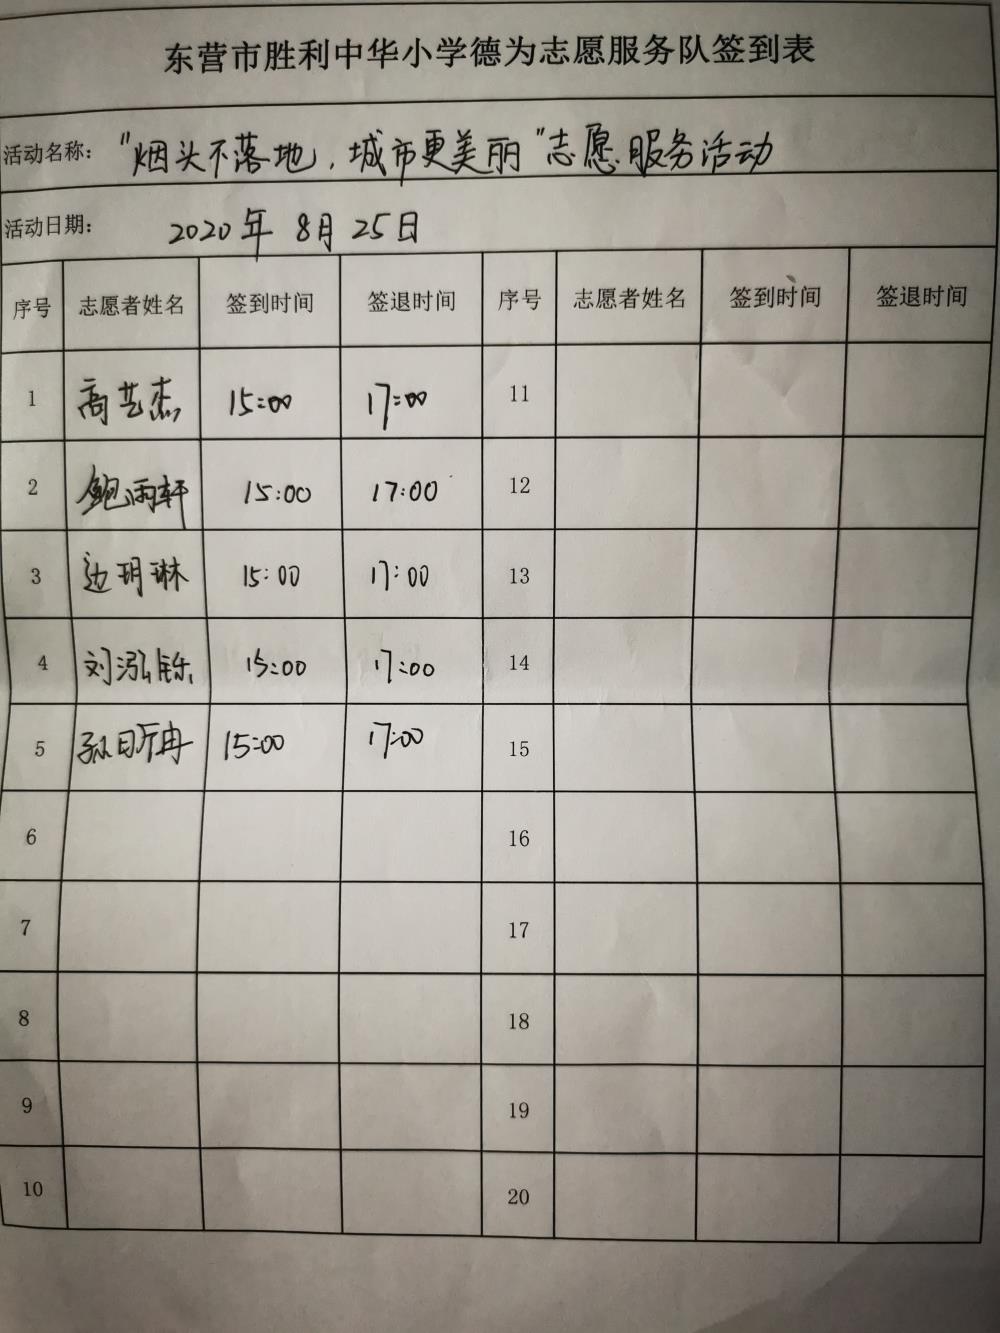 东营市胜利中华小学德为志愿服务队签到表
活动名称： "烟头不落地，城市更美丽"志愿服务活动
活动日期： 2020年 8月 25日
序号 志愿者姓名 签到时间 签退时间 序号 志愿者姓名 签到时间 签退时间
1 高艺杰 15:00 17:00 11
2 鲍雨轩 15:00 17:00 12
3 边玥琳 15:00 17:00 13
4 刘泓铄 15:00 17:00 14
5 15:00 17:00 15
6 16
7 17
8 18
9 19
10 20